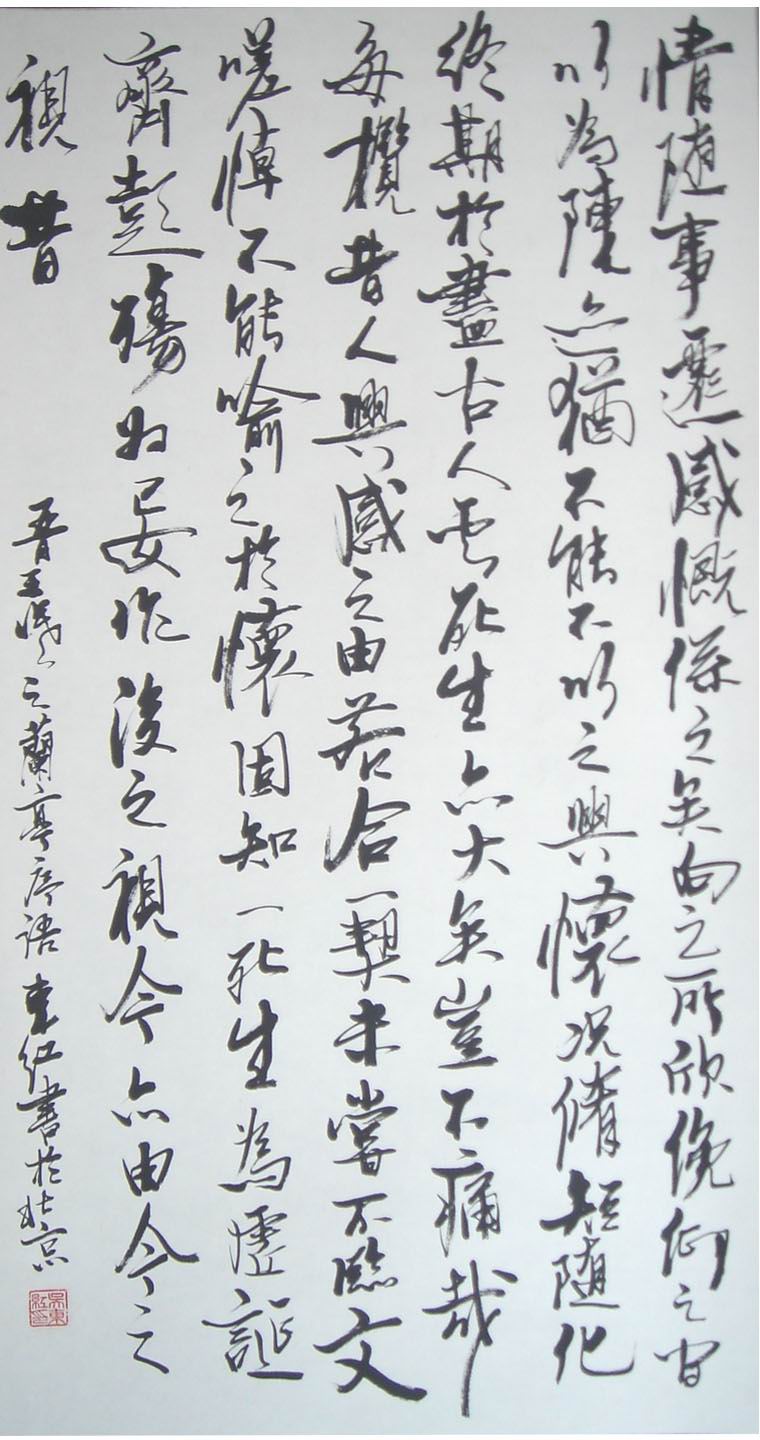 情随事遷感慨係之矣向之所欣俛仰之間
以為陳迹猶不能不以之興懷況脩短随化
終期於盡古人云死生亦大矣豈不痛哉
每攬昔人興感之由若合一契未嘗不臨文
嗟悼不能喻之於懷固知一死生為虛誕
齊彭殤為妄作後之視今亦由今之
視昔
晋王羲之蘭亭序語 東紅書於北京
吳東紅印